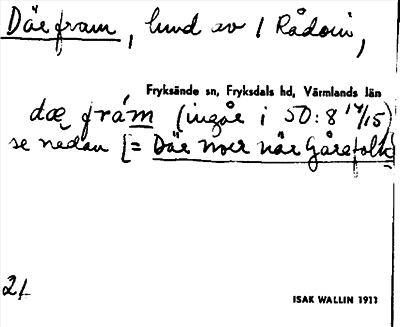 Därfram, lund av 1 Rådom,
Fryksände sn, Fryksdals hd, Värmlands län
dæ frám (ingår i 50:8 14/15)
se nedan [= Där norr när Gårefolk]
21
ISAK WALLIN 1911